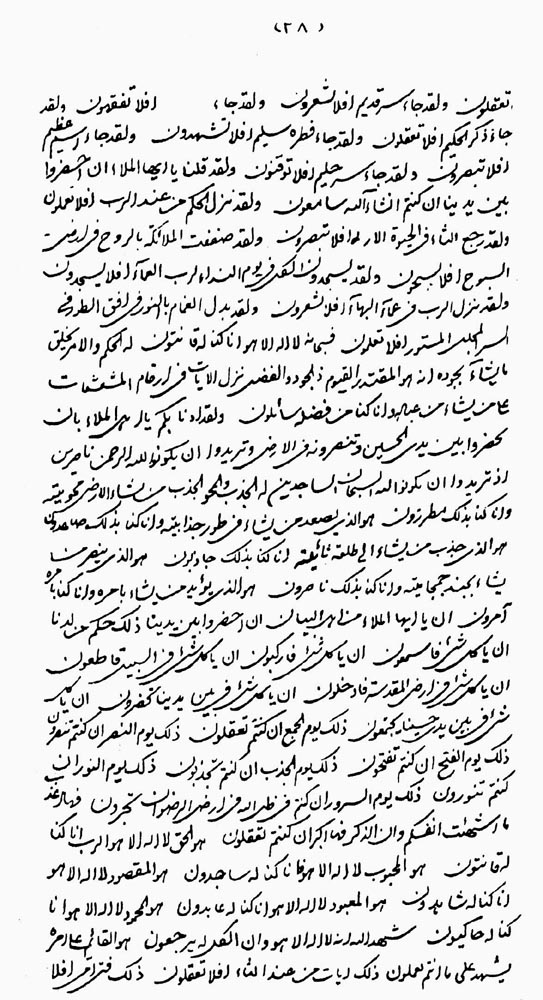 (٢٨)
تعقلون ولقد جاء سر قديم افلا تشعرون ولقد جاء افلا تفقهون ولقد
جاء ذكر الحكيم افلا تعقلون ولقد جاء فطرة سليم افلا تشهدون ولقد جاء عظيم
افلا تبصرون ولقد جاء سر حليم افلا توقنون ولقد قلنا يا ايها الملاء ان احضروا
بين يدينا ان كنتم انشاء الله سامعون ولقد نزل الحكم من عند الرب افلا تعملون
ولقد رجع الثناء في افلا تبصرون ولقد صفت الملائكة بالروح في ارض
السبوح افلا ولقد يسجدون الكل في يوم النداء لرب العماء افلا يسجدون
ولقد نزل الرب في عماء البهاء افلا تشعرون ولقد بدل الغمام بالنور في افق الطور في
السر المجلل المستور افلا تعلمون فسبحانه لا اله الا هو انا كنا له قانتون له الحكم والامر يخلق
ما يشاء بجوده انه هو المقتدر القيوم ذو الجود والفضل نزل الايات في ارقام
على من يشاء من عباده وانا كنا من فضله سائلون ولقد بكم يا الملاء بان
تحضروا بين يدي الحسين وتنصرونه في الارض وتريدوا ان يكونوا لله الرحمن ناصرين
اذ تريدوا ان يكونوا لله السبحان الساجدين له الجذب والمحو يجذب من يشاء الارض
وانا كنا بذلك هو الذي يصعد من يشاء في طور جذابيته وانا كنا بذلك صاعدون
هو الذي جذب من يشاء الى طلعة انا كنا بذلك جاذبون هو الذي ينصر من
يشاء بجند وانا كنا بذلك ناصرون هو الذي يؤيد من يشاء بامره وانا كنا بامره
آمرون ان يا ايها الملاء من اهل البيان ان احضروا بين يدينا ذلك حكم من لدنا
ان يا كل شيء فاسمعون ان يا كل شيء فاركبون ان يا كل شيء في السبيل قاطعون
ان يا كل شيء في ارض المقدسة فادخلون ان يا كل شيء في بين يدينا تحضرون ان يا كل
شيء في بين يدي تجتمعون ذلك يوم الجمع ان كنتم تعقلون ذلك يوم النصر ان كنتم تنصرون
ذلك يوم الفتح ان كنتم تفتحون ذلك يوم الجذب ان كنتم تجذبون ذلك يوم النور ان
كنتم تنورون ذلك يوم السرور ان كنتم في ظل الله في ارض الرضوان تحبرون فيها
ما اشتهت انفسكم وان الذكر فيها اكبر ان كنتم تعقلون هو الحق لا اله الا هو الرب انا كنا
له قانتون هو المحبوب لا اله الا هو فانا كنا له ساجدون هو المقصود لا اله الا هو
انا كنا له شاهدون هو المعبود لا اله الا هو انا كنا له عابدون هو المحمود لا اله الا هو انا
كنا له حاكيون شهد الله انه لا اله الا هو وان الكل له يرجعون هو القائم على امره
يشهد على ما انتم تعملون ذلك ايات من عند الله افلا تعقلون ذلك افلا